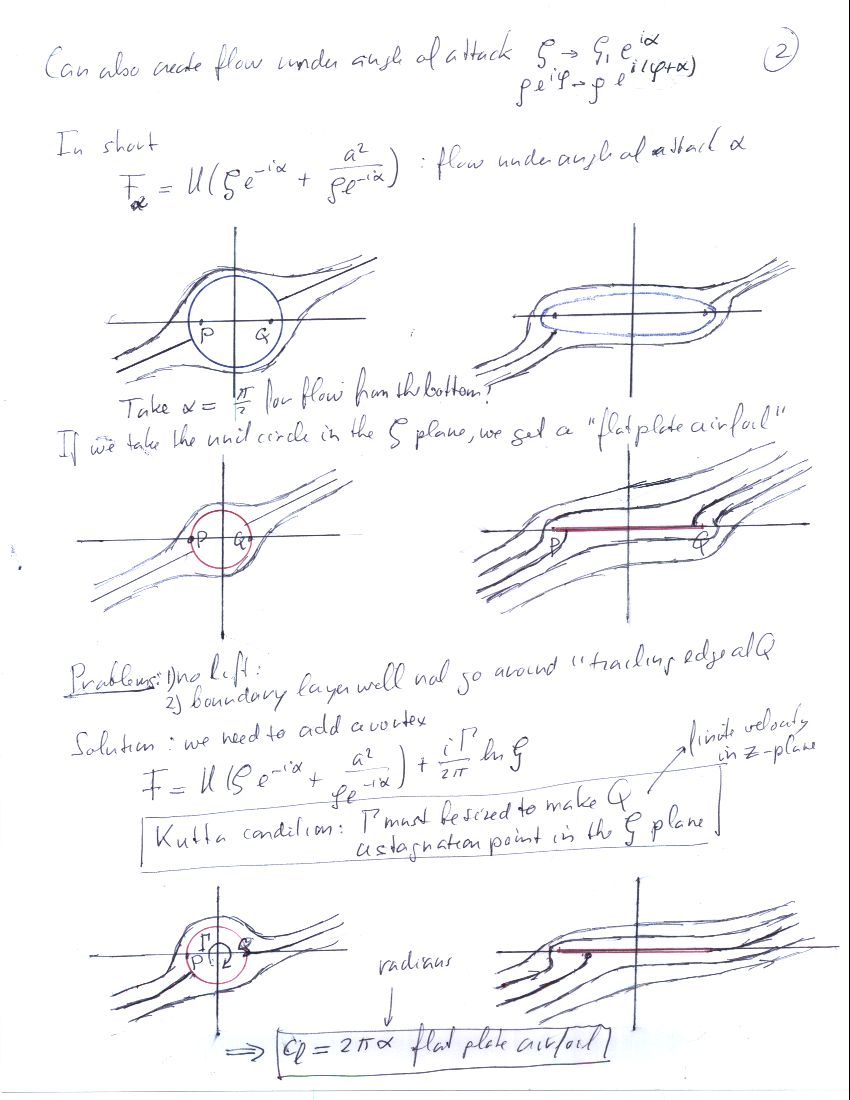 Can also create flow under angle of attack ζ → ζ₁ e^{iα}
②
ρe^{iφ} → ρ e^{i(φ+α)}
In short
F_α = U(ζe^{-iα} + a²/ζe^{-iα}) : flow under angle of attack α
P Q
Take α = π/2 for flow from the bottom!
If we take the unit circle in the ζ plane, we get a "flat plate airfoil"
P Q
P Q
Problems: 1) no lift:
2) boundary layer will not go around "trailing edge at Q
Solution: we need to add a vortex
finite velocity
in z-plane
F = U(ζe^{-iα} + a²/ζe^{-iα}) + iΓ/2π ln ζ
Kutta condition: Γ must be sized to make Q
a stagnation point in the ζ plane
Γ Q
P
radians
⇒ cl = 2πα flat plate airfoil